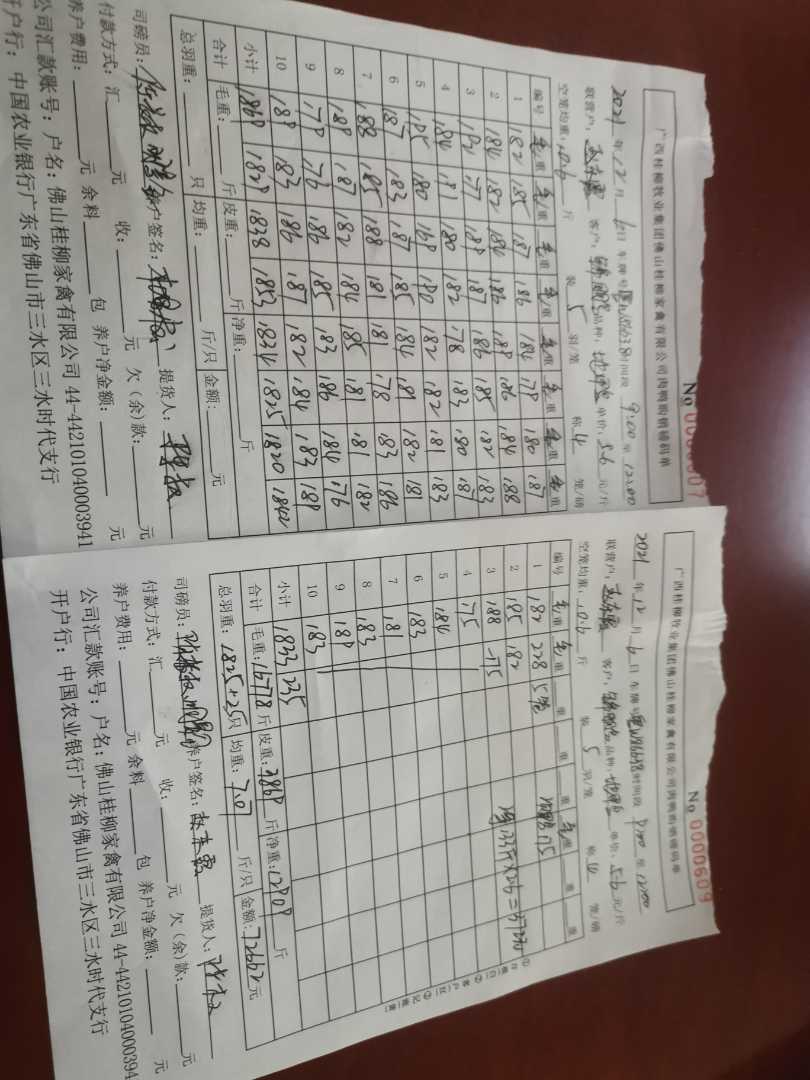 No 0000607
广西桂柳牧业集团佛山桂柳家禽有限公司肉鸭购销磅码单
2021 年 12 月 6 日 车牌号 时间段 9:00 至 12:00
联营户: 客户: 品种: 单价: 5.6 元/斤
空笼均重: 10.6 斤 装 5 羽/笼 称 4 笼/磅
编号 毛重 毛重 毛重 毛重 毛重 毛重 毛重 毛重
1 182 185 187 186 184 179 180 187
2 184 182 184 186 189 186 184 188
3 191 177 189 187 186 185 182 183
4 184 181 180 182 178 183 180 187
5 185 180 169 190 182 182 181 183
6 187 183 187 185 184 181 182 181
7 188 185 188 181 181 178 183 186
8 189 187 182 184 185 181 181 182
9 179 176 186 185 183 186 184 176
10 189 183 186 187 182 184 183 189
小计 1869 1829 1838 1853 1834 1825 1820 1842
合计 毛重: 斤 皮重: 斤 净重: 斤
总羽重: 只 均重: 斤/只 金额: 元
司磅员: 养户签名: 提货人:
付款方式: 汇 元 收: 元 欠(余)款: 元
养户费用: 元 余料 包 养户净金额: 元
公司汇款账号: 户名: 佛山桂柳家禽有限公司 44-442101040003941
开户行: 中国农业银行广东省佛山市三水区三水时代支行
No 0000609
广西桂柳牧业集团佛山桂柳家禽有限公司肉鸭购销磅码单
2021 年 12 月 6 日 车牌号 时间段 9:00 至 12:00
联营户: 客户: 品种: 单价: 5.6 元/斤
空笼均重: 10.6 斤 装 5 羽/笼 称 4 笼/磅
编号 毛重 毛重 重 重 重 毛重 重 重
1 182 228 5笼
2 185 182
3 188 -175
4 175
5 184
6 183
7 181
8 183
9 189
10 183
小计 1833 235
合计 毛重: 16778 斤 皮重: 3869 斤 净重: 12909 斤
总羽重: 1825+25只 均重: 7.07 斤/只 金额: 72662 元
司磅员: 养户签名: 提货人:
付款方式: 汇 元 收: 元 欠(余)款: 元
养户费用: 元 余料 包 养户净金额: 元
公司汇款账号: 户名: 佛山桂柳家禽有限公司 44-44210104000394
开户行: 中国农业银行广东省佛山市三水区三水时代支行